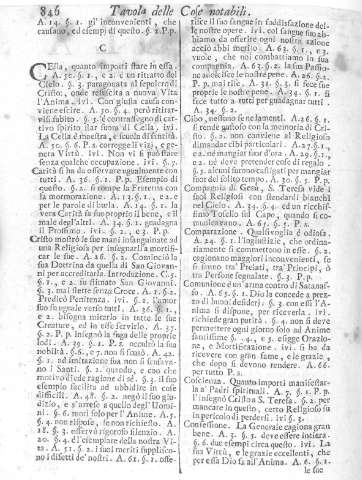 846 Tavola delle Cose notabili.
A. 14. §. 1. gl' inconvenienti, che
causano, ed esempi di questo. §. 2. P. p.
C
CElla, quanto importi stare in essa.
A. 5. §. 1., e 2. è un ritratto del
Cielo. §. 3. paragonata al sepolcro di
Cristo, onde resuscita a nuova Vita
l'Anima. ivi. Con giusta causa con-
viene escire. A. 30. §. 4. però ritirar-
visi subito. §. 3. è contrasegno di cat-
tivo spirito star fuora di Cella. ivi.
La Cella è maestra, e scuola di santità.
A. 50. §. 6. P. s. corregge li viaj, e ge-
nera Virtù. ivi. Non vi si può stare
senza qualche occupazione. ivi. §. 7.
Carità si ha da osservare ugualmente con
tutti. A. 10. §. 2. P. p. Esempio di
questo. §. 2. si rompe la Fraterna con
la mormorazione. A. 13. §. 1., e 2.
per le parole di burla. A. 14. §. 2. la
vera Carità fa suo il proprio bene, e il
male degl'altri. A. 34. §. 2. guadagna
il Prossimo. ivi. §. 2., e 3.
Cristo mostrò le sue mani insanguinate ad
una Religiosa per insegnarla a mortifi-
car le sue. A. 28. §. 2. Cominciò la
sua Dottrina da quella di San Giovan-
ni per accreditarla. Introduzione. C. 5.
§. 1. e fu stimato San Giovanni.
§. 3. mai stette senza Croce. A. 5. §. 2.
Predicò Penitenza. ivi. §. 2. l'amor
suo fu uguale verso tutti. A. 36. §. 1.,
e 2. bisogna mirarlo in tutte le sue
Creature, ed in esse servirlo. A. 37.
§. 2. P. p. Insegnò la fuga delle proprie
lodi. A. 39. §. 1. P. 2. occultò la sua
nobiltà. §. 6., e 7. non si scusò. A. 42.
§. 1. ad imitazione sua non si scusava-
no i Santi. §. 2. quando, e con che
motivo ci ede ragione di sè. §. 3. il suo
esempio facilita ad ubbidire in cose
difficili. A. 48. §. 2. negò il suo giu-
dizio, e s'arrese a quello degl'Uomi-
ni. §. 6. morì solo per l'Anime. A. 5.
§. 4. non rispose, se non richiesto. A.
18. §. 3. osservò rigoroso silenzio. A.
20. §. 4. di l'esemplare della nostra Vi-
ta. A. 51. §. 2. i suoi meriti supplisco-
no i difetti de' nostri. A. 61. §. 2. offe-
risce il suo sangue in saddisfazione del-
le nostre opere. ivi. col sangue suo ab-
biamo da offerire ogni nostra azione
acciò abbi merito. A. 63. §. 1., e 3.
vuole, che noi combattiamo la sua
compagnia. A. 63. §. 2. la sua Passio-
ne addolcisce le nostre pene. A. 26. §. 2.
mai si scusò. A. 31. §. 3. si fece sue
proprie le nostre pene. A. 34. §. 1. si
fece tutto a tutti per guadagnar tutti.
A. 34. §. 2.
Cibo, nessuno se ne lamenti. A. 26. §. 1.
si rende gustoso con la memoria di Cri-
sto. §. 2. non conviene al Religioso
dimandar cibi particolari. A. 27. §. 1.,
e 2. nè mangiar fuor d'ora. A. 29. §. 1.,
e 2. nè deve pretender cose di regalo.
§. 2. alcuni furono castigati per mangiar
fuor del solito tempo. A. 30. §. 3. P. p.
Compagnia di Gesù, S. Teresa vide i
suoi Religiosi con stendardi bianchi
nel Cielo. A. 33. §. 4. ed un ricchis-
simo Tosello sul Capo, quando si co-
municavano. A. 67. §. 5.
Comparazione. Qualsivoglia è odiosa.
A. 24. §. 1. l'ingiustizie, che ordina-
riamente si commettono in esse. §. 2.
cagionano maggiori inconvenienti, se
si fanno tra' Prelati, tra' Principi, o
tra Persone segnalate. §. 3. P. p.
Comunione è un'arma contro di Satanas-
so. A. 65. §. 1. Dio la concede a prez-
zo di buoni desiderj. §. 3. con essi l'A-
nima si dispone, per riceverla. ivi.
richiede gran purità. §. 4. non si deve
permettere ogni giorno solo ad Anime
santissime. §. 4., e 5. esigge Orazio-
ne, e Mortificazione. ivi. si ha da
ricevere con gran fame, e le grazie,
che dopo si devono rendere. A. 66.
per tutto.
Coscienza. Quanto importi manifestar-
la a' Padri spirituali. A. 7. §. 1. P. p.
l'insegnò Cristo a S. Teresa. §. 2. per
mancare in questo, certo Religioso fu
in pericolo di perdersi. ivi. §. 3.
Confessione. La Generale cagiona gran
bene. A. 3. §. 2. deve essere intiera.
§. 6. due esempi circa questo. ivi. La
sua Virtù, e le grazie eccellenti, che
per essa Dio fa all'Anima. A. 6. §. 1.
le sue